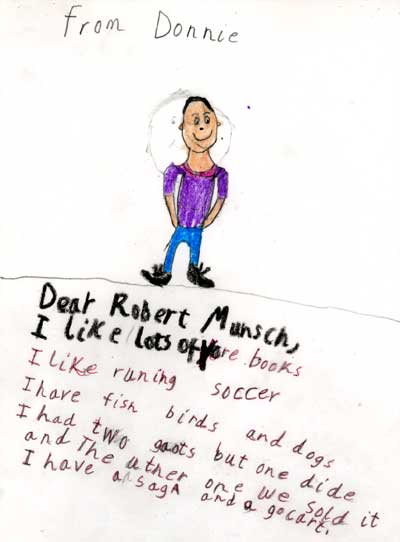 From Donnie
Dear Robert Munsch,
I like lots of yore books
I like runing soccer
I have fish birds and dogs
I had two goots but one dide
and The uther one we sold it
I have a sagA and a gocart.